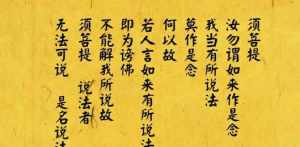 须菩提
汝勿谓如来作是念
我当有所说法
莫作是念
何以故
若人言如来有所说法
即为谤佛
不能解我所说故
须菩提 说法者
无法可说 是名说法